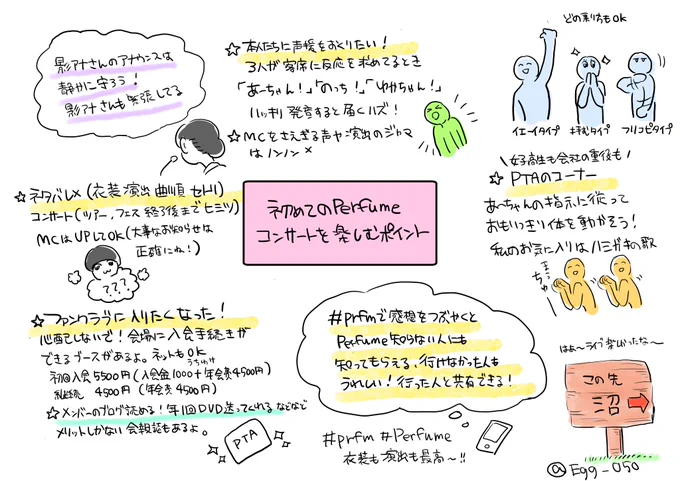 初めてのPerfume
コンサートを楽しむポイント
影アナさんのアナウンスは
静かに守ろう!
影アナさんも緊張してる
☆本人たちに声援をおくりたい!
3人が客席に反応を求めてるとき
「あ〜ちゃん!」「のっち!」「ゆかちゃん!」
ハッキリ発音すると届くハズ!
☆MCをさえぎる声や演出のジャマ
はノンノン×
どの乗り方もOK
イエーイタイプ
拝むタイプ
フリコピタイプ
\女子高生も会社の重役も/
☆PTAのコーナー
あ〜ちゃんの指示に従って
おもいっきり体を動かそう!
私のお気に入りはハミガキの歌
☆ネタバレ×(衣装 演出 曲順 セトリ)
コンサート(ツアー、フェス終了後までヒミツ)
MCはUPしてOK(大事なお知らせは
正確にね!)
????
☆ファンクラブに入りたくなった!
心配しないで!会場に入会手続きが
できるブースがあるよ。ネットもOK
初回入会 5500円(入会金1000+年会費4500円)
継続 4500円(年会費4500円)
☆メンバーのブログ読める!年1回DVD送ってくれるなどなど
メリットしかない会報誌もあるよ。
PTA
#prfmで感想をつぶやくと
Perfume知らない人にも
知ってもらえる、行けなかった人も
うれしい!行った人と共有できる!
#prfm #Perfume
衣装も演出も最高〜!!
はぁ〜ライブ楽しかったな〜
この先
沼
@Egg-050